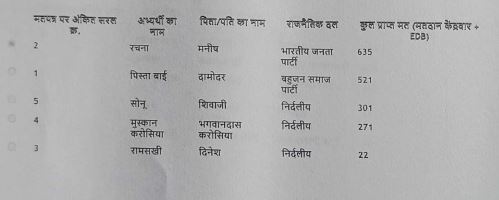 मतपत्र पर अंकित सरल अभ्यर्थी का पिता/पति का नाम राजनैतिक दल कुल प्राप्त मत (मतदान केंद्रवार +
क्र. नाम EDB)
2 रचना मनीष भारतीय जनता 635
पार्टी
1 पिस्ता बाई दामोदर बहुजन समाज 521
पार्टी
5 सोनू शिवाजी निर्दलीय 301
4 मुस्कान भगवानदास निर्दलीय 271
करोसिया करोसिया
3 रामसखी दिनेश निर्दलीय 22